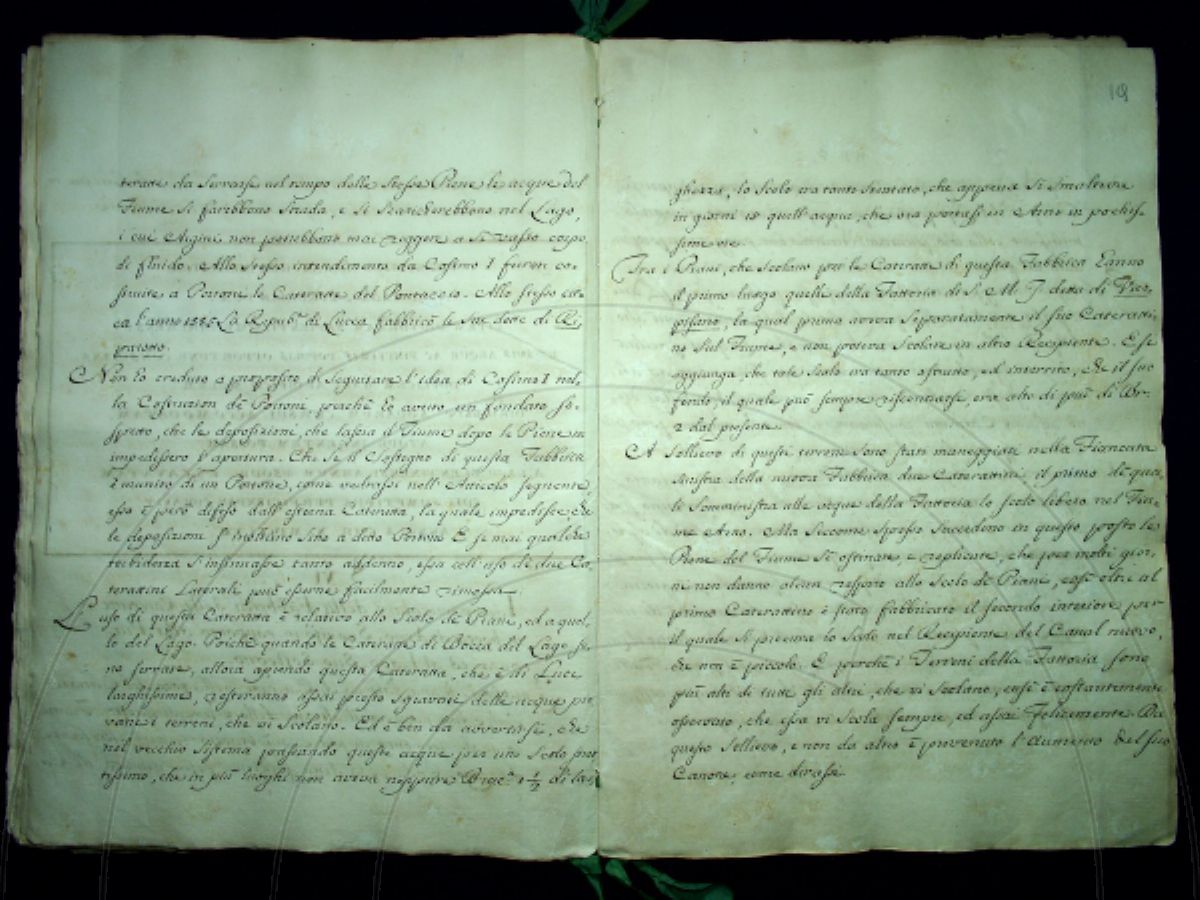 teratte da serrarsi nel tempo delle stesse Piene le acque del
Fiume si farebbono strada, e si scaricherebbono nel Lago,
i cui Argini non potrebbono mai reggere a sì vasto corpo
di fluido. Allo stesso intendimento da Cosimo I furon co-
struite a Portone le Cateratte del Pontaccio. Allo stesso
l'anno La Repub.ª di Lucca fabbricò le sue dette di Ri-
paratto.
Non ho creduto a proposito di seguitare l'idea di Cosimo I nel-
la Costruzion de Portoni, perchè ho avuto un fondato so-
spetto, che le deposizioni, che lascia il Fiume dopo le Piene
impedissero l'apertura. Che se il Sostegno di questa Fabbrica
è munito di un Portone, come vedrassi nell'Articolo seguente,
esso è però difeso dall'esterna Cateratta, la quale impedisce che
le deposizioni s'inoltrino sino a detto Portone. E se mai qualche
torbidezza s'insinuasse tanto addentro, essa coll'uso di due Ca-
terattini Laterali può esserne facilmente rimossa.
L'uso di questa Cateratta è relativo allo Scolo de Piani, ed a quel-
lo del Lago. Poichè quando le Cateratte di Bocca del Lago sie-
no serrate, allora aprendo questa Cateratta, che è di Luce
larghissima, resteranno assai presto sgravati delle acque pio-
vane i terreni, che vi scolano. Ed è ben da avvertirsi, che
nel vecchio sistema passando queste acque per uno scolo
che in più luoghi non aveva neppure Brac.ª 1 1/2 di lar-
19
ghezza, lo scolo era tanto stentato, che appena si smaltivano
in giorni 15 quell'acque, che ora portassi in Arno in pochis-
sime ore.
Tra i Piani, che scolano per le Cateratte di questa Fabbrica hanno
il primo luogo quelli della Fattoria di S. M. I. detta di Vico-
pisano, la qual prima aveva separatamente il suo Cateratti-
no sul Fiume, e non poteva scolare in altro Recipiente. E si
aggiunga, che tale Scolo era tanto astruito, ed interrito, che il suo
fondo, il quale può sempre riscontrarsi, era alto di più di Br.
2 dal presente.
A sollievo di questi terreni sono stati maneggiati nella Fiancata
sinistra della nuova Fabbrica due Caterattini, il primo de qua-
li somministra alle acque della Fattoria lo scolo libero nel Fiu-
me Arno. Ma siccome spesso succedono in questo posto le
Piene del Fiume sì ostinate, e replicate, che per molti gior-
ni non danno alcun respiro allo Scolo de Piani, così oltre al
primo Caterattino è stato fabbricato il secondo inferiore per
il quale si procura lo Scolo nel Recipiente del Canal nuovo,
che non è piccolo. E perchè i Terreni della Fattoria sono
più alti di tutti gli altri, che vi scolano, così è costantemente
osservato, che essa vi scola sempre, ed assai felicemente. Da
questo sollievo, e non da altro è provenuto l'Aumento del suo
Canone, come dirassi.